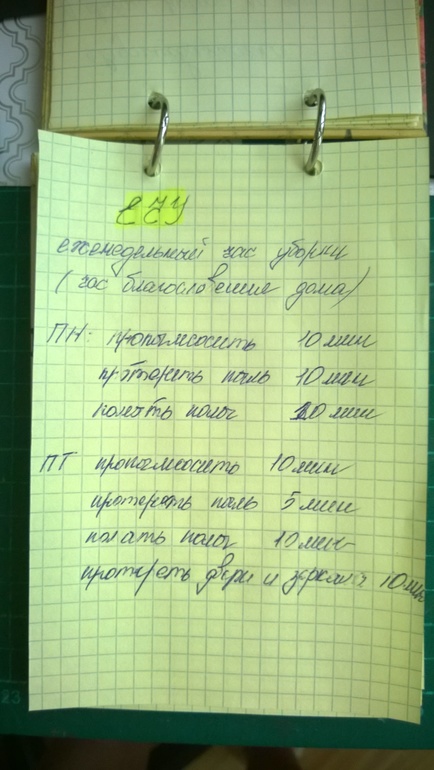 ЕЧУ
еженедельный час уборки
(час благословение дома)
ПН: пропылесосить 10 мин
протереть пыль 10 мин
помыть полы 10 мин
ПТ пропылесосить 10 мин
протереть пыль 5 мин
помыть полы 10 мин
протереть двери и зеркала 10 мин
23